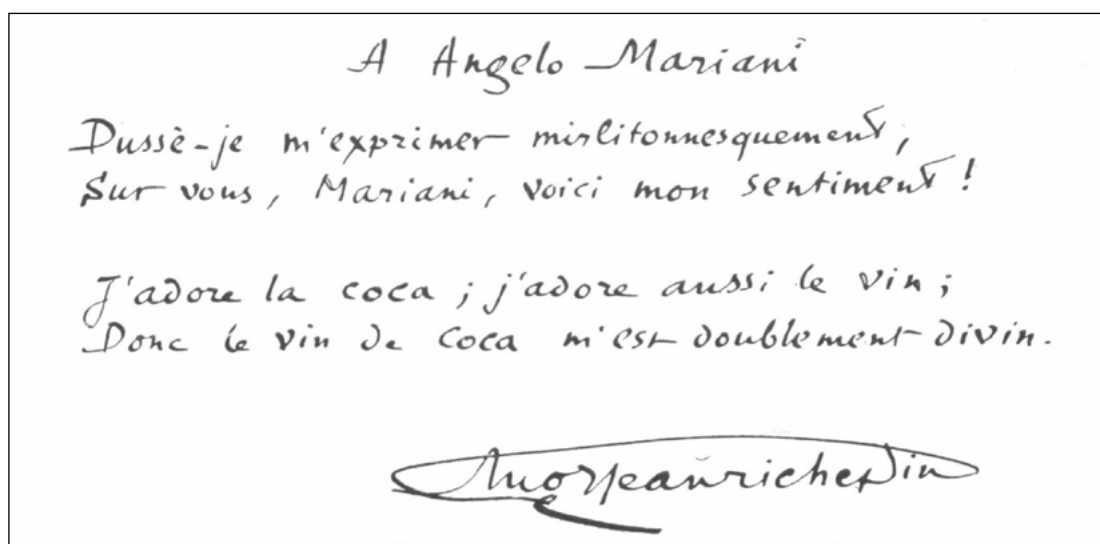 A Angelo Mariani
Dussè-je m'exprimer mirlitonnesquement,
Sur vous, Mariani, voici mon sentiment !
J'adore la coca ; j'adore aussi le vin ;
Donc le vin de coca m'est doublement divin.
Jean richepin